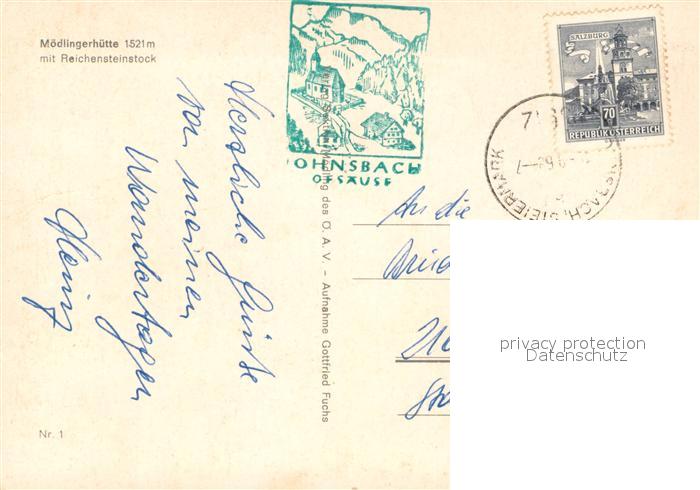 Mödlingerhütte 1521m
mit Reichensteinstock
Herzliche Grüße
von meinen
Wandertagen
Heinz
Nr. 1
des Ö. A. V. – Aufnahme Gottfried Fuchs
OHNSBACH
GESÄUSE
SALZBURG
70
REPUBLIK ÖSTERREICH
STEIERMARK
An die
privacy protection
Datenschutz